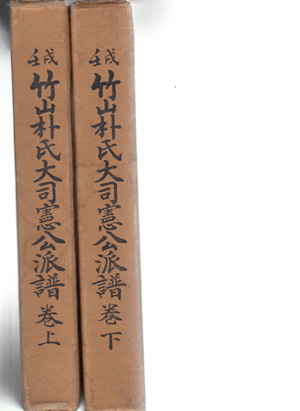 壬戌
竹山朴氏大司憲公派譜 卷上
壬戌
竹山朴氏大司憲公派譜 卷下